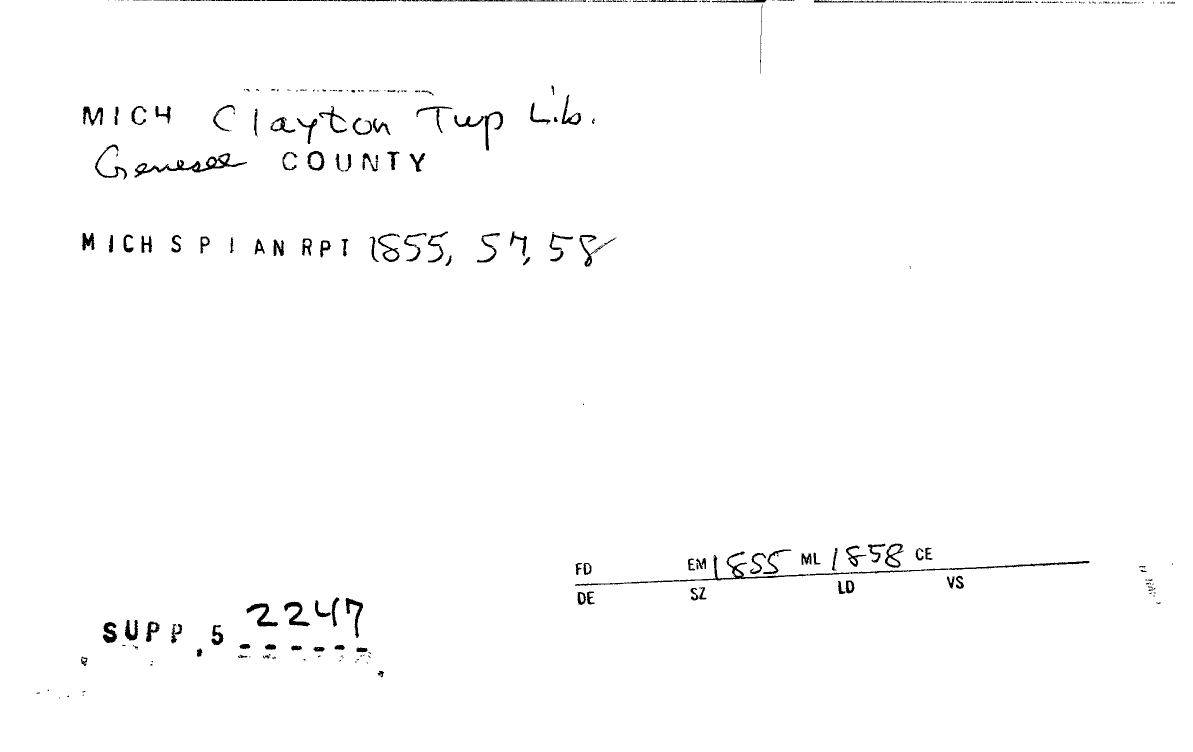 MICH Clayton Twp Lib.
Genesee COUNTY
MICH S P I AN RPT 1855, 57, 58
FD EM 1855 ML 1858 CE
DE SZ LD VS
SUPP.5 2247